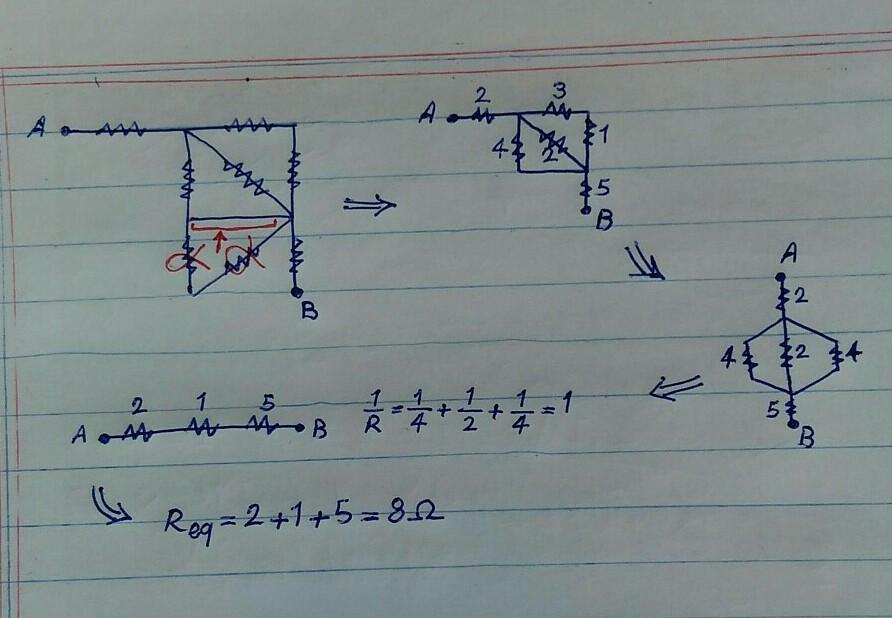 A
B
A 2 3
4 2 1
5
B
A
2
4 2 4
5
B
A 2 1 5 B 1/R = 1/4 + 1/2 + 1/4 = 1
Req = 2 + 1 + 5 = 8Ω